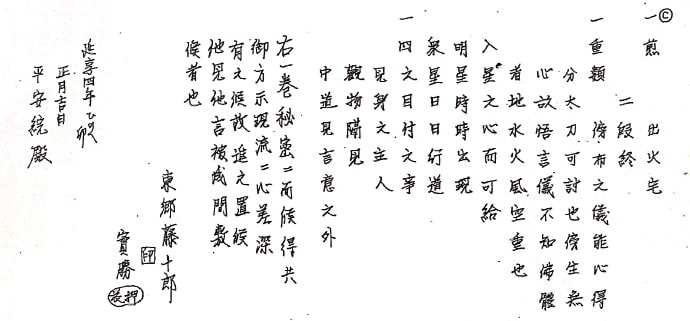 ©
一煎 出火宅
二段終
一重類 滂布之儀能心得
分太刀可討也傍生無
心故悟言儀不知佛體
者地水火風空重也
入星之心而可給
明星時時出現
衆星日日行道
一四文目付之事
見身之主人
觀物隔見
中道見言意之外
右一巻秘密ニ而候得共
御方示現流ニ心差深
有之候故進之置候
他見他言被成間敷
候者也
東郷藤十郎
實勝
印
花押
延享四年乙卯
正月吉日
平安統殿